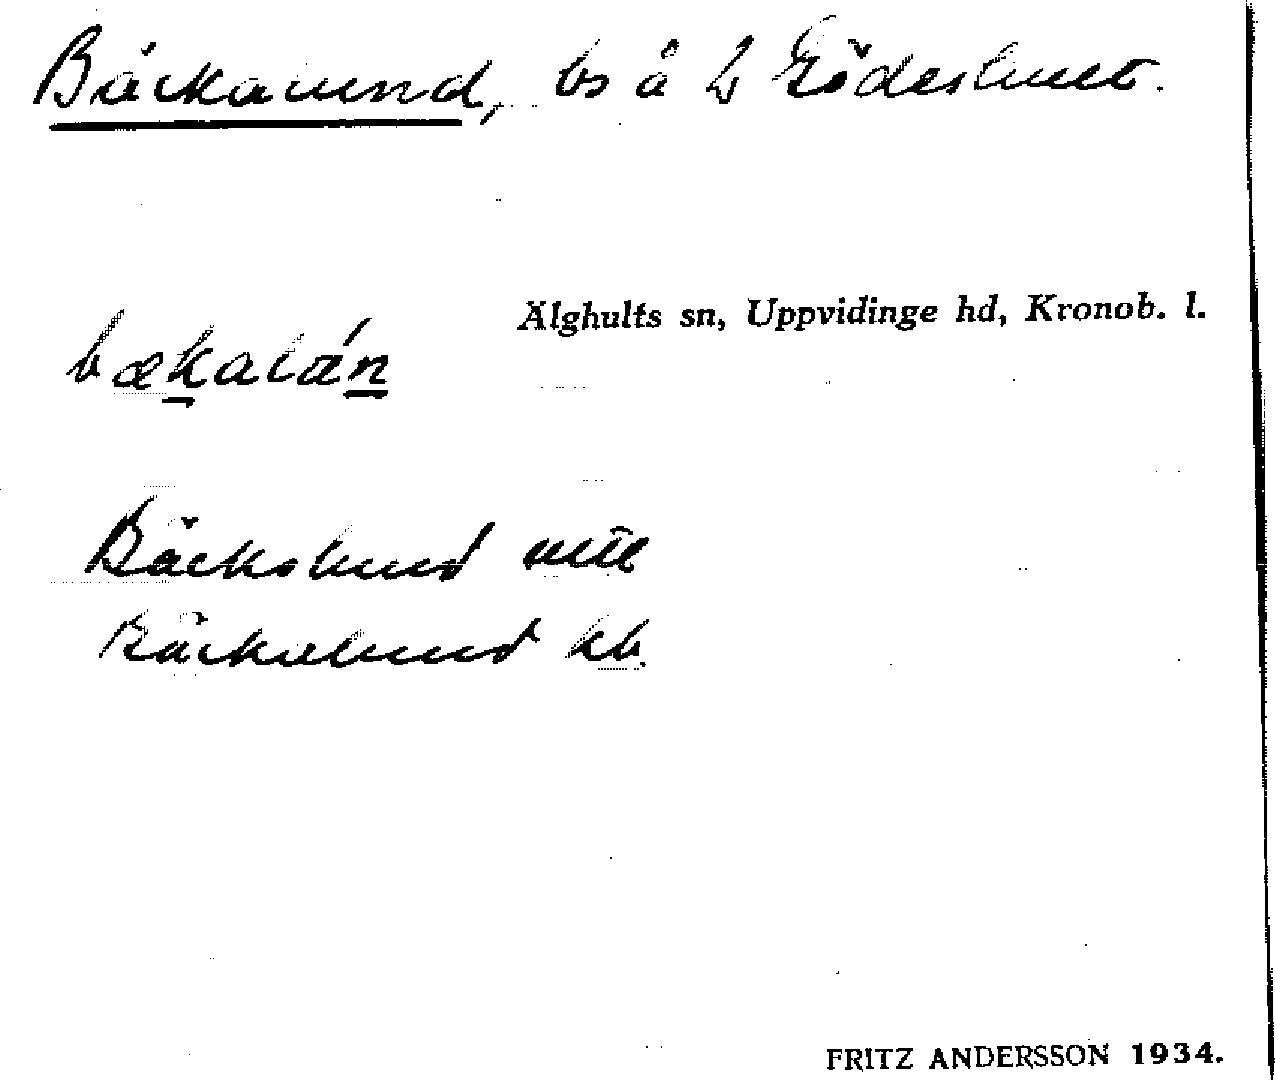 Bäckalund, bs å h Södeshult.
Älghults sn, Uppvidinge hd, Kronob. l.
bækalán
Bäckslund
Bäckalund kb.
FRITZ ANDERSSON 1934.